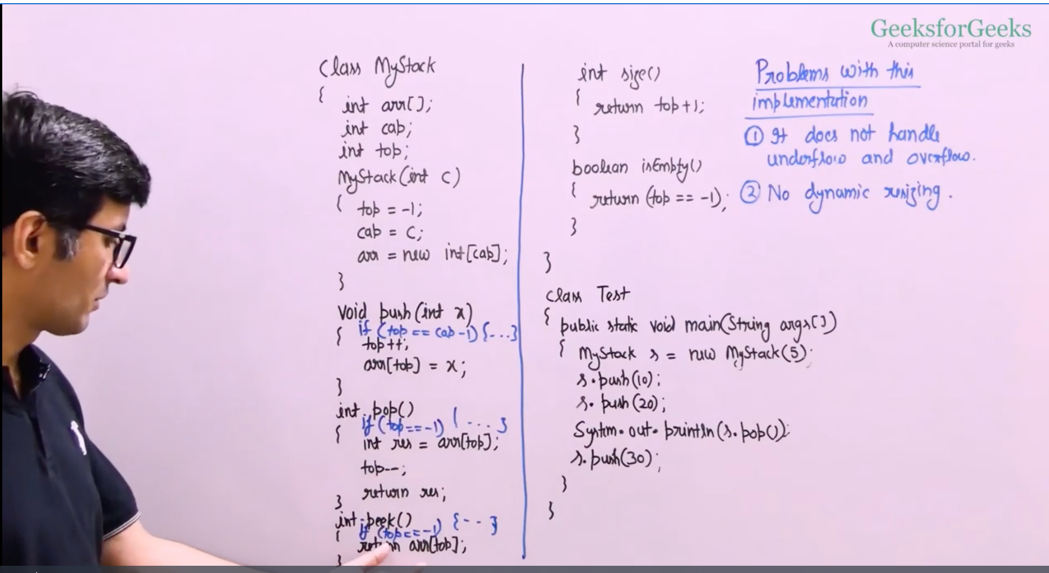 GeeksforGeeks
A computer science portal for geeks
class MyStack
{
int arr[];
int cap;
int top;
MyStack(int c)
{
top = -1;
cap = c;
arr = new int[cap];
}
void push(int x)
{ if (top == cap-1) {...}
top++;
arr[top] = x;
}
int pop()
if (top == -1) { ... }
{ int res = arr[top];
top--;
return res;
}
int peek()
if (top == -1) {-- }
{ return arr[top];
}
int size()
{
return top+1;
}
boolean isEmpty()
{
return (top == -1);
}
}
class Test
{ public static void main(String args[])
{ MyStack s = new MyStack(5);
s.push(10);
s.push(20);
System.out.println(s.pop());
s.push(30);
}
}
Problems with this
implementation
① It does not handle
underflow and overflow.
② No dynamic resizing.